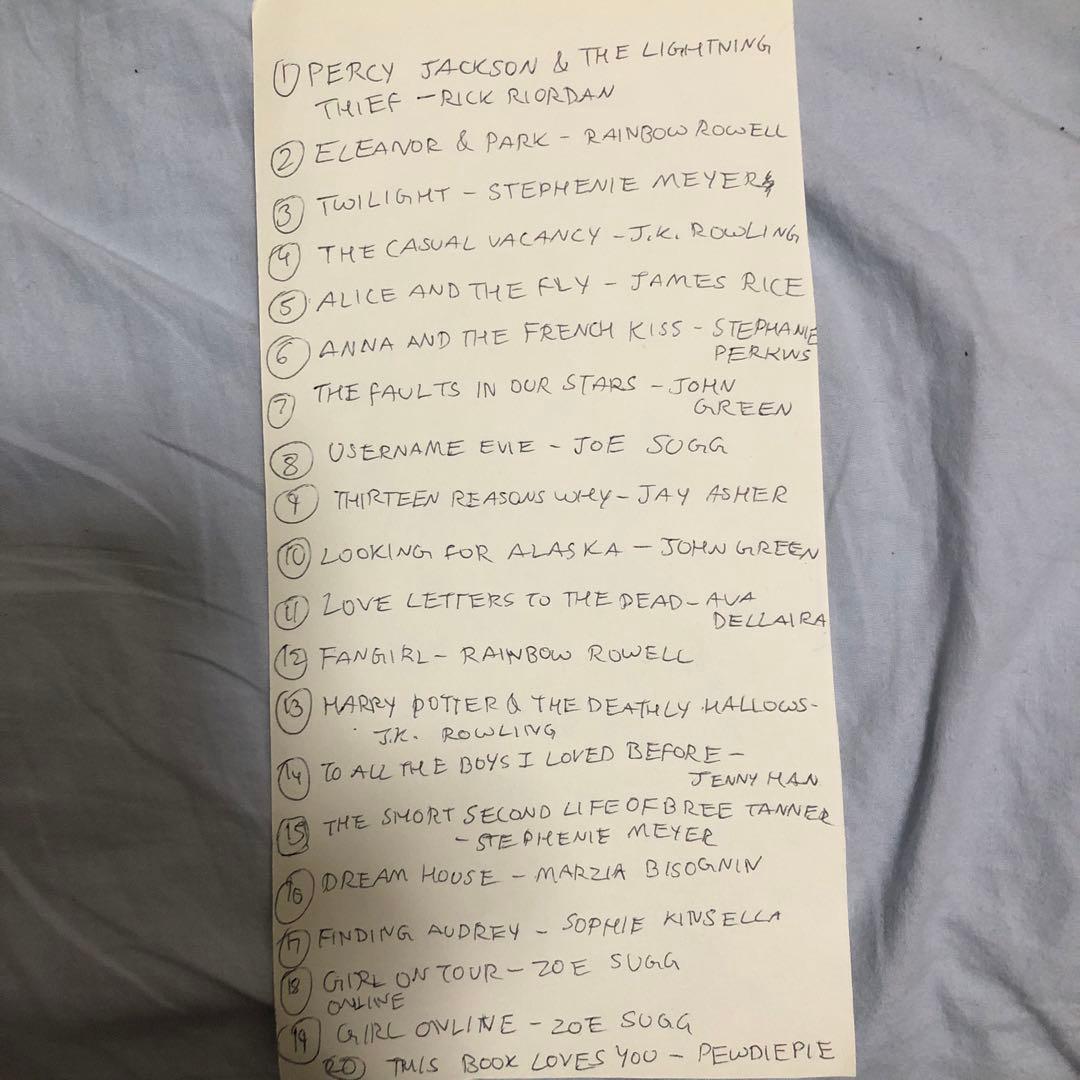 ① PERCY JACKSON & THE LIGHTNING
THIEF - RICK RIORDAN
② ELEANOR & PARK - RAINBOW ROWELL
③ TWILIGHT - STEPHENIE MEYER
④ THE CASUAL VACANCY - J.K. ROWLING
⑤ ALICE AND THE FLY - JAMES RICE
⑥ ANNA AND THE FRENCH KISS - STEPHANIE
PERKINS
⑦ THE FAULTS IN OUR STARS - JOHN
GREEN
⑧ USERNAME EVIE - JOE SUGG
⑨ THIRTEEN REASONS WHY - JAY ASHER
⑩ LOOKING FOR ALASKA - JOHN GREEN
⑪ LOVE LETTERS TO THE DEAD - AVA
DELLAIRA
⑫ FANGIRL - RAINBOW ROWELL
⑬ HARRY POTTER & THE DEATHLY HALLOWS -
J.K. ROWLING
⑭ TO ALL THE BOYS I LOVED BEFORE -
JENNY HAN
⑮ THE SHORT SECOND LIFE OF BREE TANNER
- STEPHENIE MEYER
⑯ DREAM HOUSE - MARZIA BISOGNIN
⑰ FINDING AUDREY - SOPHIE KINSELLA
⑱ GIRL ON TOUR - ZOE SUGG
ONLINE
⑲ GIRL ONLINE - ZOE SUGG
⑳ THIS BOOK LOVES YOU - PEWDIEPIE